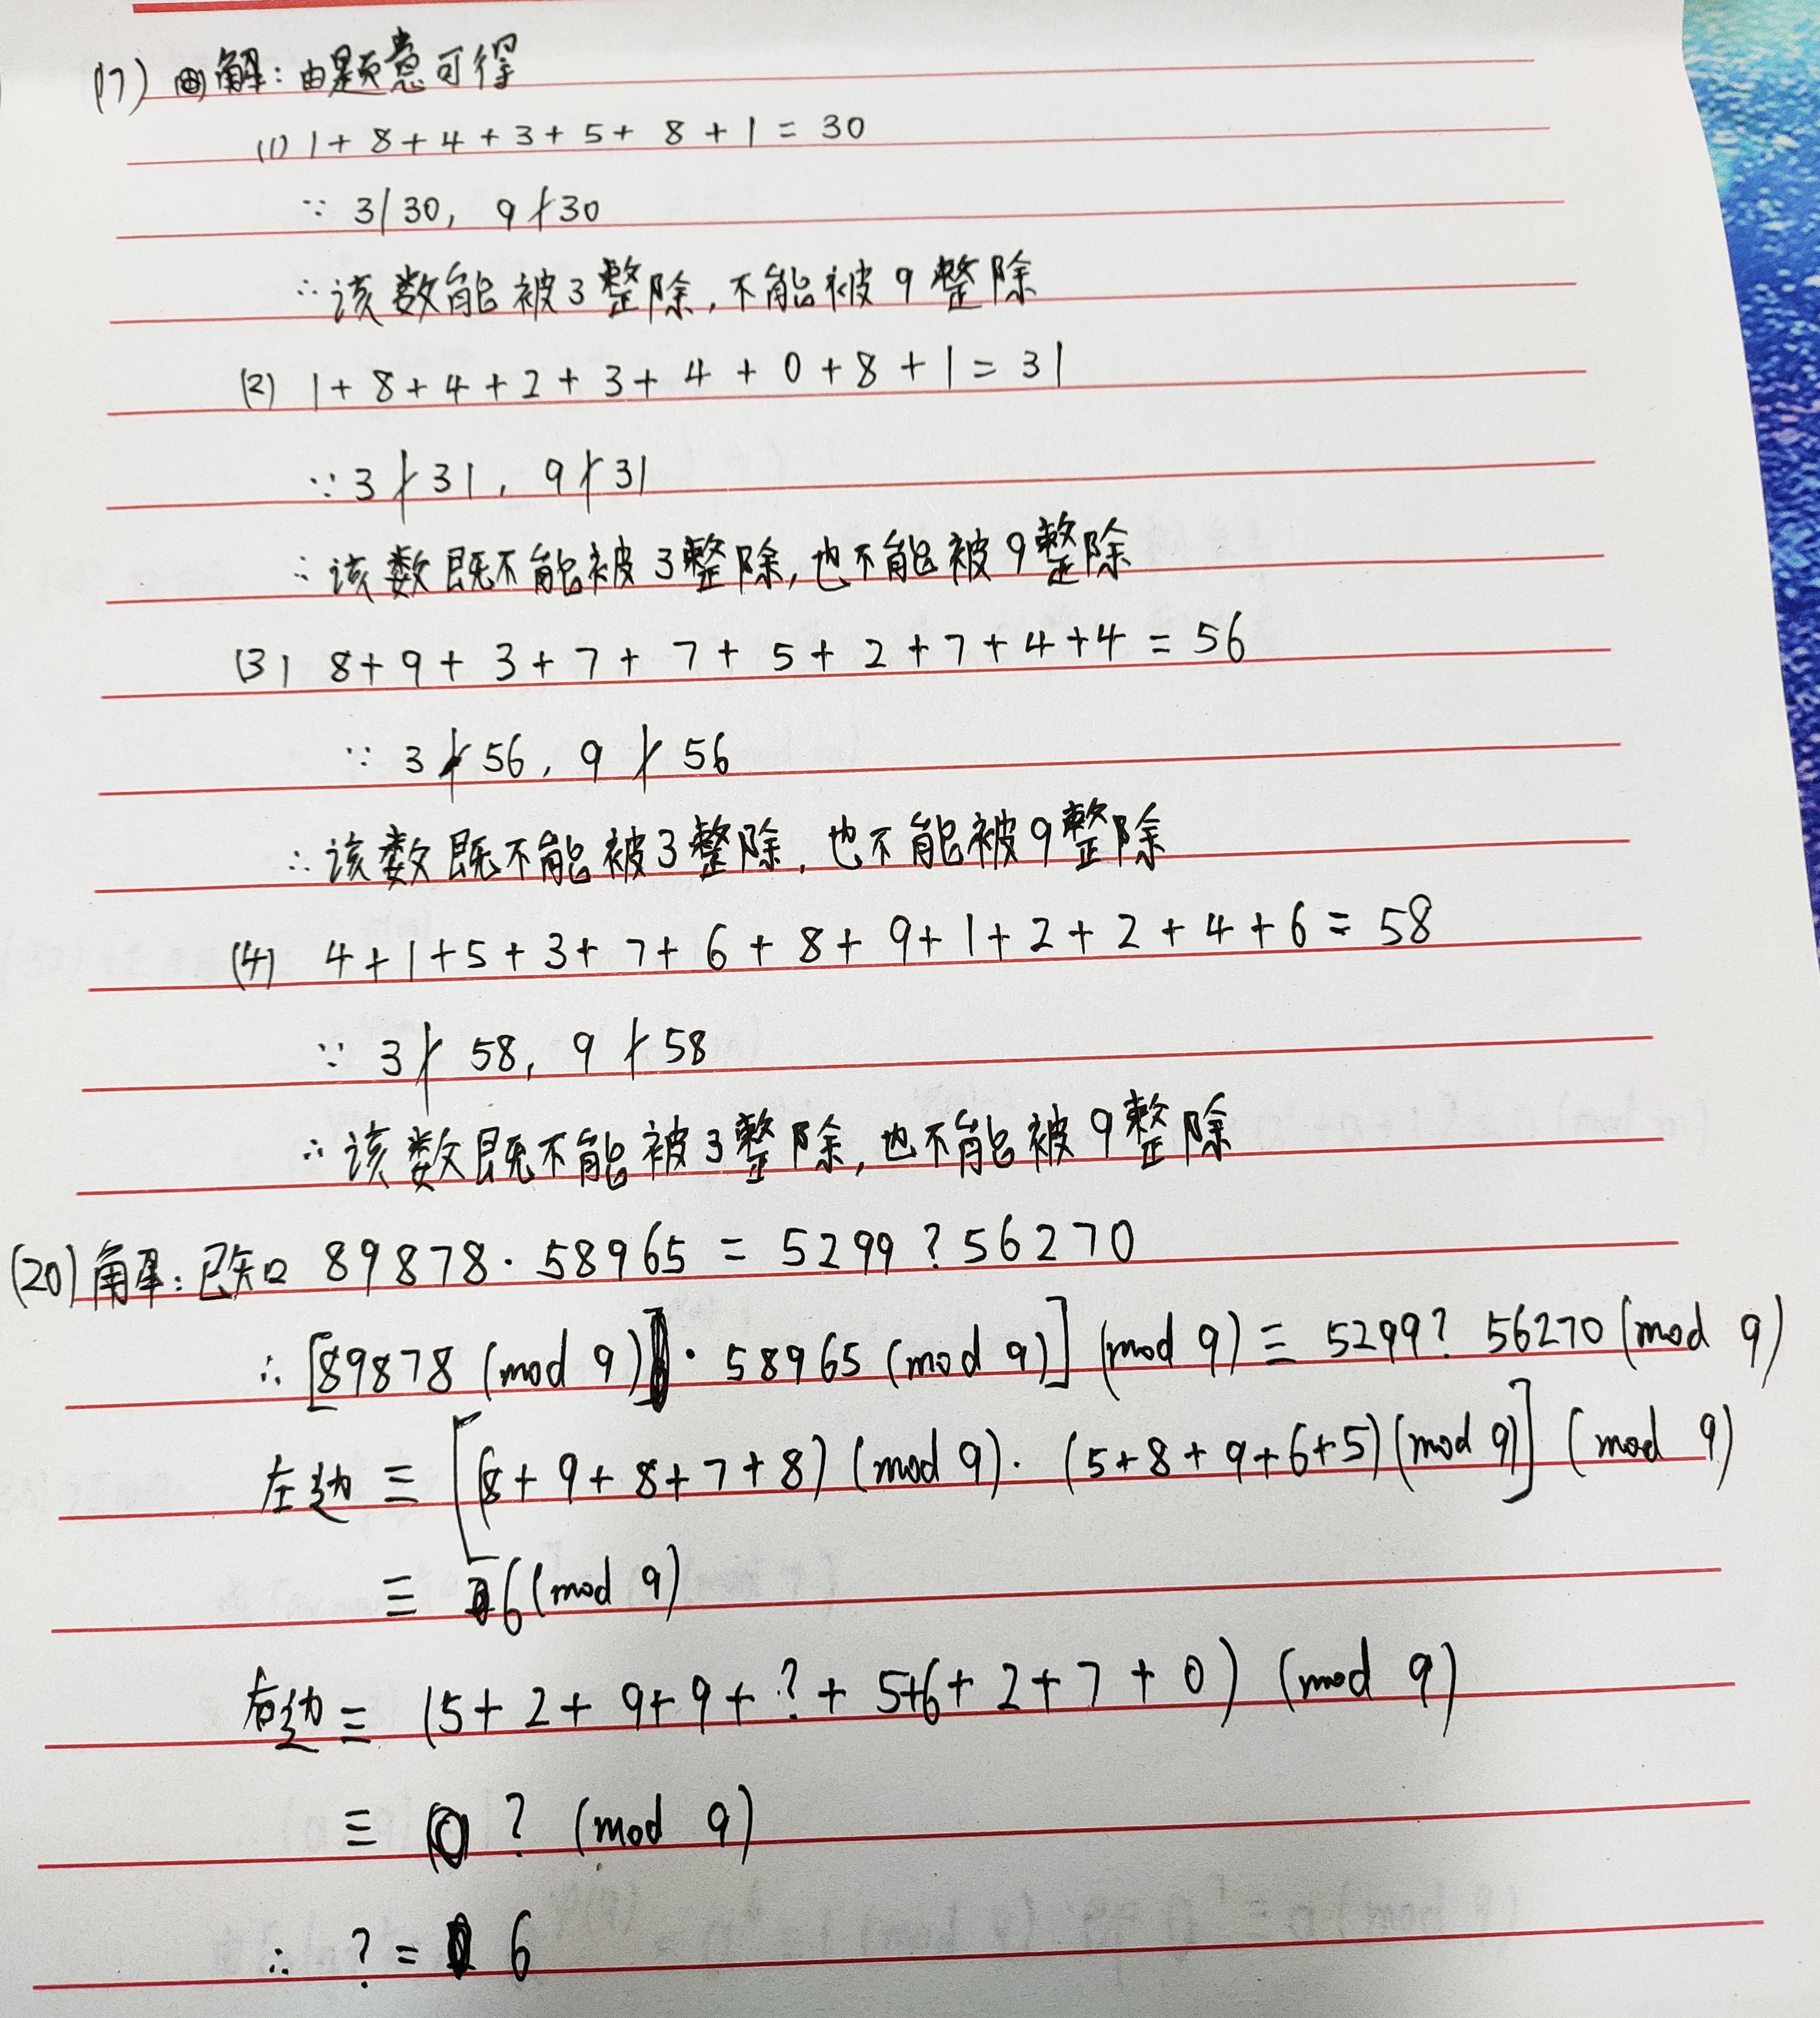 (17) 解：由题意可得
(1) 1+8+4+3+5+8+1=30
∵ 3|30, 9∤30
∴该数能被3整除,不能被9整除
(2) 1+8+4+2+3+4+0+8+1=31
∵3∤31, 9∤31
∴该数既不能被3整除,也不能被9整除
(3) 8+9+3+7+7+5+2+7+4+4=56
∵ 3∤56, 9∤56
∴该数既不能被3整除,也不能被9整除
(4) 4+1+5+3+7+6+8+9+1+2+2+4+6=58
∵ 3∤58, 9∤58
∴该数既不能被3整除,也不能被9整除
(20)解:已知 89878·58965=5299?56270
∴[89878 (mod 9)·58965 (mod 9)] (mod 9)≡5299?56270 (mod 9)
左边≡[(8+9+8+7+8) (mod 9)·(5+8+9+6+5) (mod 9)] (mod 9)
≡6 (mod 9)
右边≡(5+2+9+9+?+5+6+2+7+0) (mod 9)
≡? (mod 9)
∴ ?=6